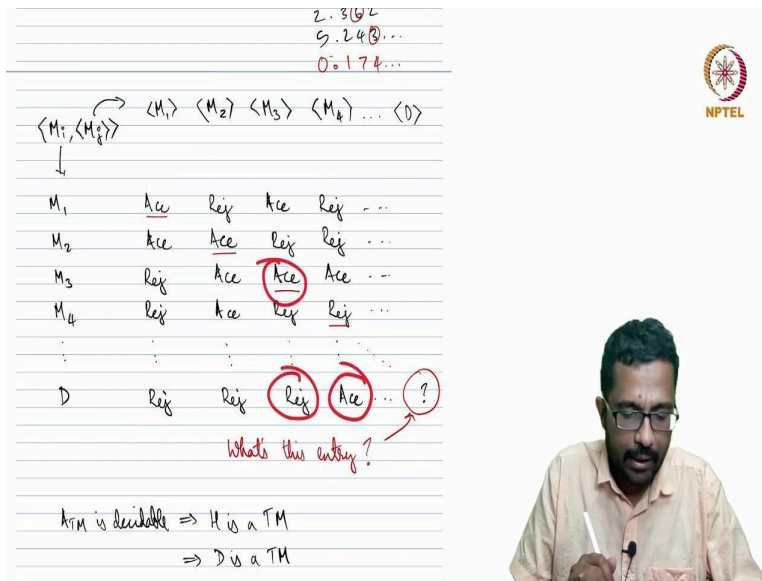 2.362
5.243...
0.174...
NPTEL
⟨M₁⟩ ⟨M₂⟩ ⟨M₃⟩ ⟨M₄⟩ ... ⟨D⟩
⟨Mᵢ, ⟨Mⱼ⟩⟩
M₁ Acc Rej Acc Rej ...
M₂ Acc Acc Rej Rej ...
M₃ Rej Acc Acc Acc ...
M₄ Rej Acc Rej Rej ...
D Rej Rej Rej Acc ... ?
What's this entry?
A_TM is decidable ⇒ H is a TM
⇒ D is a TM